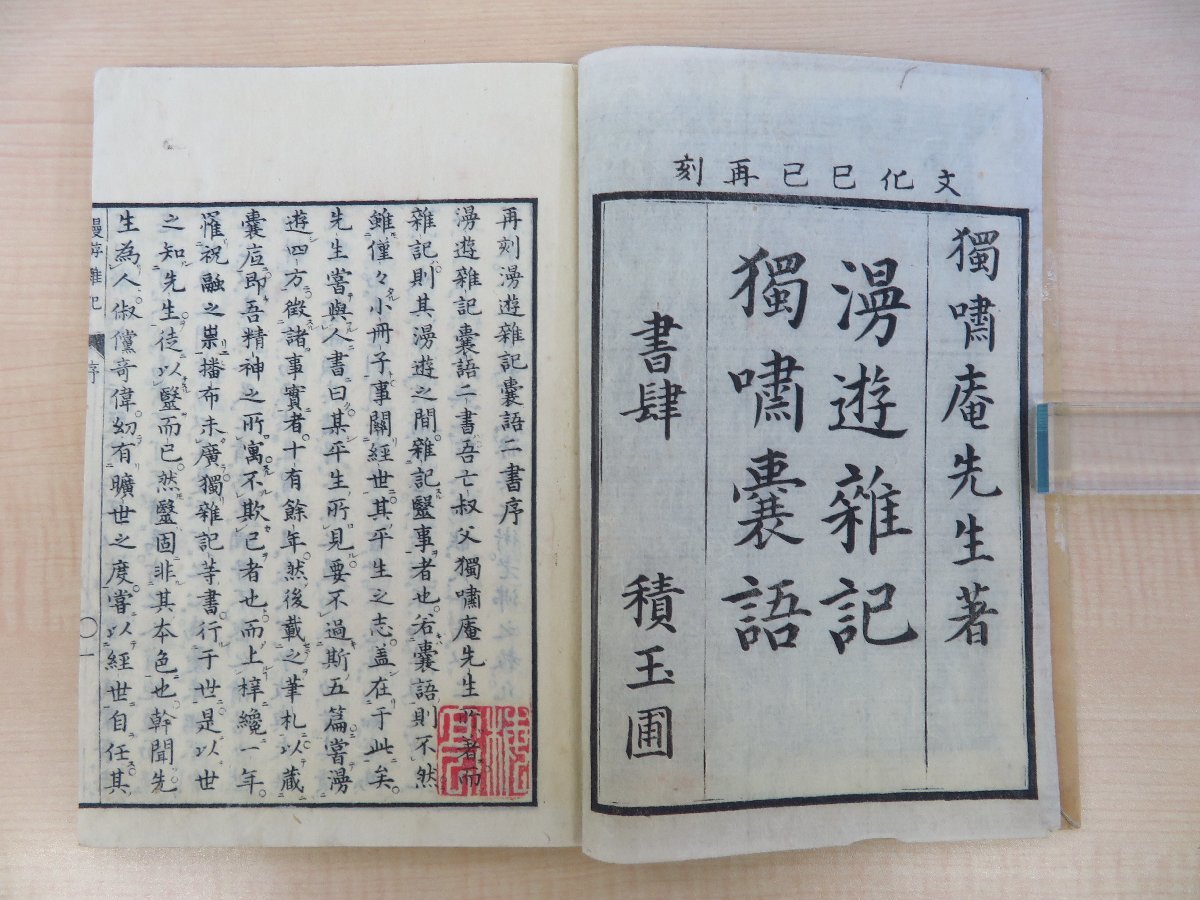 文化己巳再刻
獨嘯庵先生著
漫遊雜記
獨嘯囊語
書肆 積玉圃
再刻漫遊雜記囊語二書序
漫遊雜記囊語二書吾亡叔父獨嘯庵先生所著而
雜記則其漫遊之間雜記醫事者也若囊語則不然
雖僅々小冊子事關經世其平生之志盖在于此矣
先生嘗與人書曰其平生所見要不過斯五篇嘗漫
遊四方徵諸事實者十有餘年然後載之筆札以藏
囊㡳即吾精神之所寓不欺己者也而上梓纔一年
罹祝融之祟播布未廣獨雜記等書行于世是以世
之知先生徒以醫而已然醫固非其本色也幹聞先
生為人俶儻奇偉幼有曠世之度嘗以經世自任其
漫游雜記 序 一